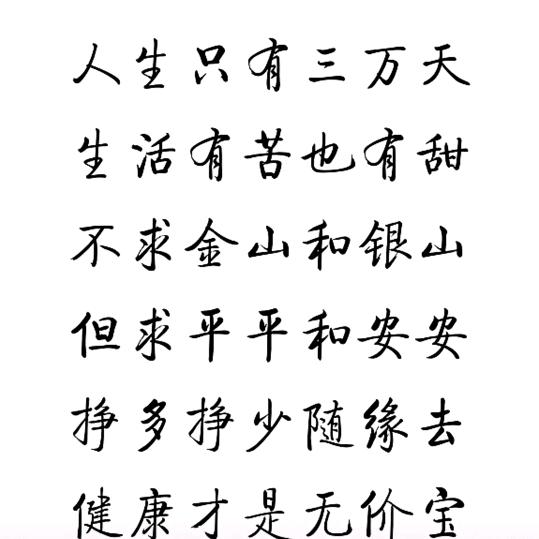 人生只有三万天
生活有苦也有甜
不求金山和银山
但求平平和安安
挣多挣少随缘去
健康才是无价宝